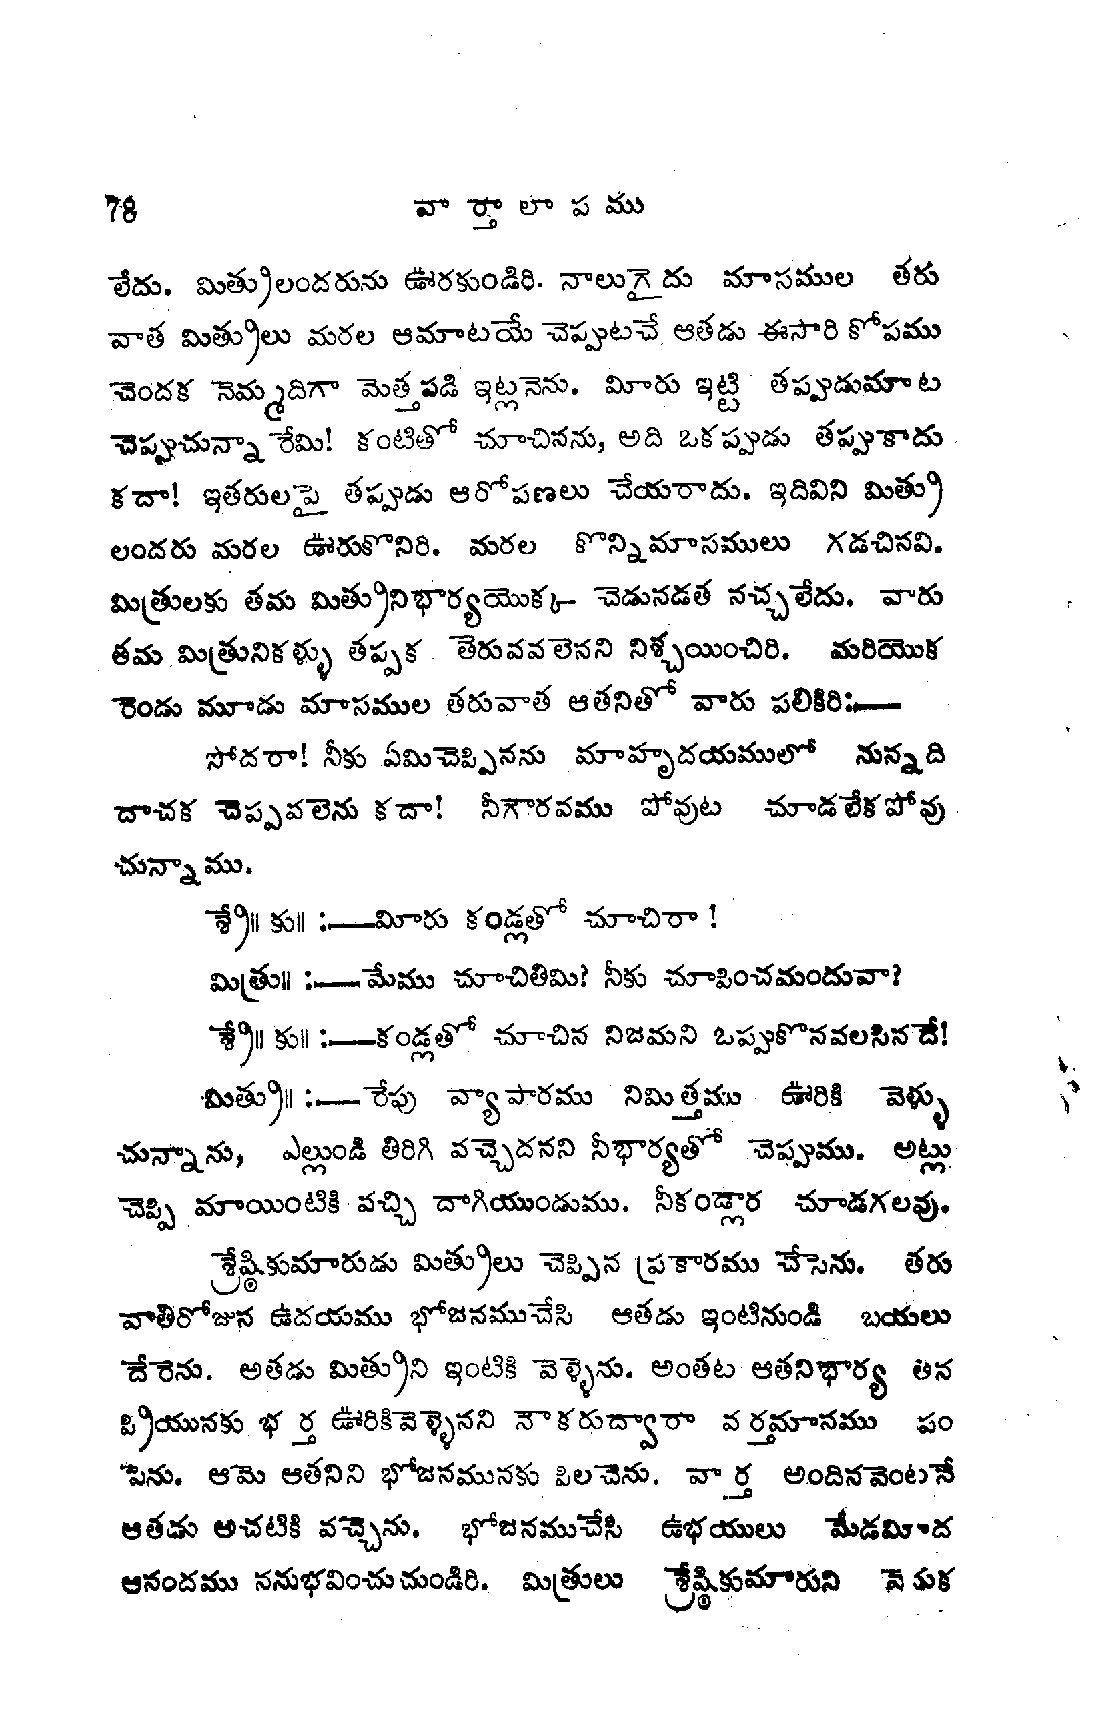 78 వార్తాలాపము
లేదు. మిత్రులందరును ఊరకుండిరి. నాలుగైదు మాసముల తరు
వాత మిత్రులు మరల ఆమాటయే చెప్పుటచే ఆతడు ఈసారి కోపము
చెందక నెమ్మదిగా మెత్తపడి ఇట్లనెను. మీరు ఇట్టి తప్పుడుమాట
చెప్పుచున్నారేమి! కంటితో చూచినను, అది ఒకప్పుడు తప్పుకాదు
కదా! ఇతరులపై తప్పుడు ఆరోపణలు చేయరాదు. ఇదివిని మిత్రు
లందరు మరల ఊరుకొనిరి. మరల కొన్నిమాసములు గడచినవి.
మిత్రులకు తమ మిత్రునిభార్యయొక్క చెడునడత నచ్చలేదు. వారు
తమ మిత్రునికళ్ళు తప్పక తెరువవలెనని నిశ్చయించిరి. మరియొక
రెండు మూడు మాసముల తరువాత ఆతనితో వారు పలికిరి:—
సోదరా! నీకు ఏమిచెప్పినను మాహృదయములో నున్నది
దాచక చెప్పవలెను కదా! నీగౌరవము పోవుట చూడలేకపోవు
చున్నాము.
శ్రే॥ కు॥ :—మీరు కండ్లతో చూచిరా !
మిత్రు॥ :—మేము చూచితిమి? నీకు చూపించమందువా?
శ్రే॥ కు॥ :—కండ్లతో చూచిన నిజమని ఒప్పుకొనవలసినదే!
మిత్రు॥ :—రేపు వ్యాపారము నిమిత్తము ఊరికి వెళ్ళు
చున్నాను, ఎల్లుండి తిరిగి వచ్చెదనని నీభార్యతో చెప్పుము. అట్లు
చెప్పి మాయింటికి వచ్చి దాగియుండుము. నీకండ్లార చూడగలవు.
శ్రేష్ఠికుమారుడు మిత్రులు చెప్పిన ప్రకారము చేసెను. తరు
వాతిరోజున ఉదయము భోజనముచేసి ఆతడు ఇంటినుండి బయలు
దేరెను. అతడు మిత్రుని ఇంటికి వెళ్ళెను. అంతట ఆతనిభార్య తన
ప్రియునకు భర్త ఊరికివెళ్ళెనని నౌకరుద్వారా వర్తమానము పం
పెను. ఆమె ఆతనిని భోజనమునకు పిలచెను. వార్త అందినవెంటనే
ఆతడు అచటికి వచ్చెను. భోజనముచేసి ఉభయులు మేడమీద
ఆనందము ననుభవించుచుండిరి. మిత్రులు శ్రేష్ఠికుమారుని వెనుక